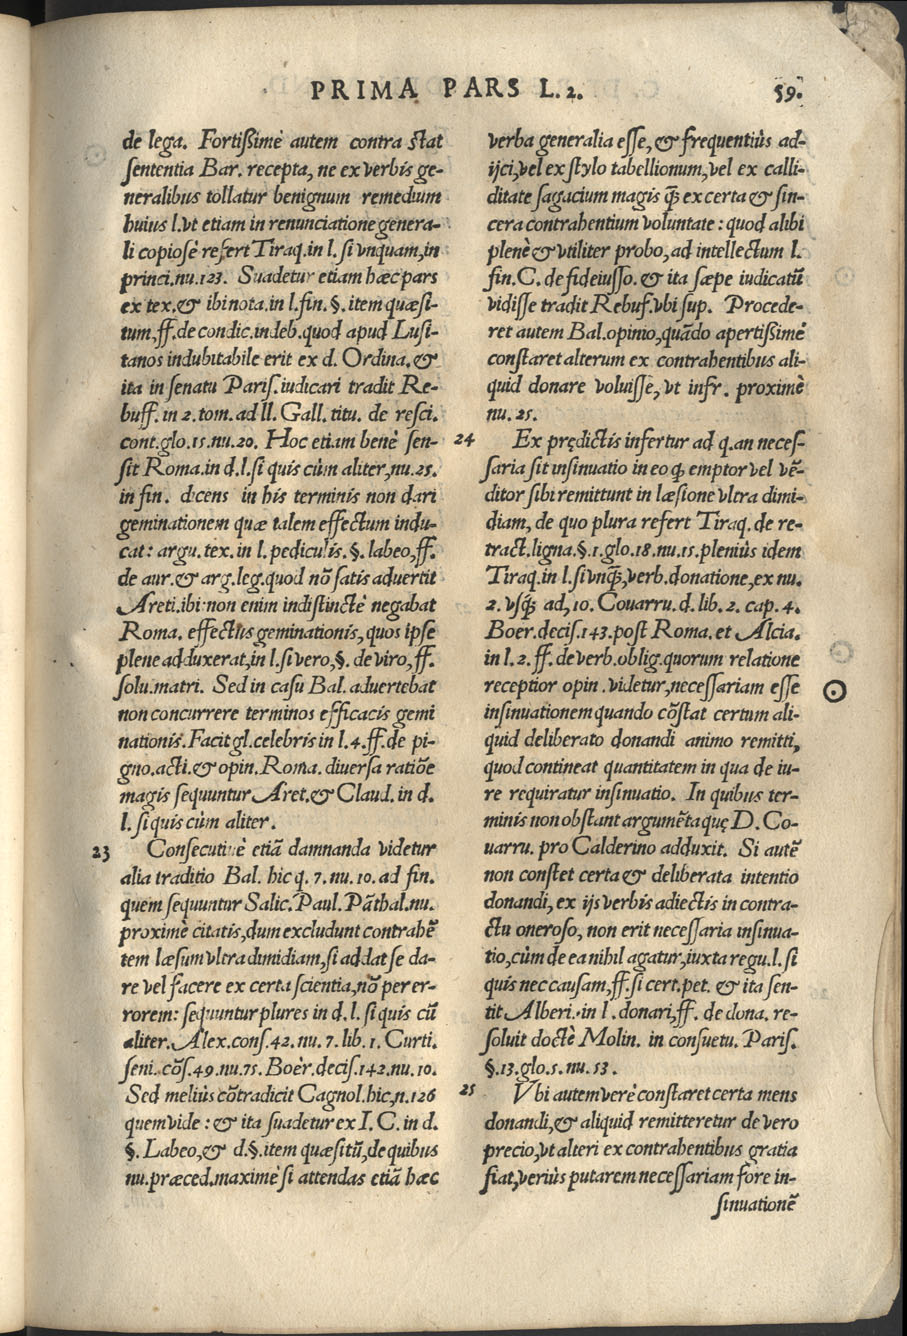 PRIMA PARS L. 2.
59.
de lega. Fortißimè autem contra stat
sententia Bar. recepta, ne ex verbis ge-
neralibus tollatur benignum remedium
huius l. vt etiam in renunciatione genera-
li copiosè refert Tiraq. in l. si vnquam, in
princi. nu. 123. Suadetur etiam hæc pars
ex tex. & ibi nota. in l. fin. §. item quæsi-
tum, ff. de condic. indeb. quod apud Lusi-
tanos indubitabile erit ex d. Ordina. &
ita in senatu Paris. iudicari tradit Re-
buff. in 2. tom. ad ll. Gall. titu. de resci.
cont. glo. 15. nu. 20. Hoc etiam benè sen-
sit Roma. in d. l. si quis cùm aliter, nu. 25.
in fin. dicens in his terminis non dari
geminationem quæ talem effectum indu-
cat: argu. tex. in l. pediculis. §. labeo, ff.
de aur. & arg. leg. quod nõ satis aduertit
Areti. ibi: non enim indistinctè negabat
Roma. effectus geminationis, quos ipse
plene adduxerat, in l. si vero, §. de viro, ff.
solu. matri. Sed in casu Bal. aduertebat
non concurrere terminos efficacis gemi
nationis. Facit gl. celebris in l. 4. ff. de pi-
gno. acti. & opin. Roma. diuersa ratiõe
magis sequuntur Aret. & Claud. in d.
l. si quis cùm aliter.
23 Consecutiuè etiã damnanda videtur
alia traditio Bal. hic q. 7. nu. 10. ad fin.
quem sequuntur Salic. Paul. Pãthal. nu.
proximè citatis, dum excludunt contrahẽ
tem læsum vltra dimidiam, si addat se da-
re vel facere ex certa scientia, nõ per er-
rorem: sequuntur plures in d. l. si quis cũ
aliter. Alex. cons. 42. nu. 7. lib. 1. Curti.
seni. cõs. 49. nu. 75. Boèr. decis. 142. nu. 10.
Sed meliùs cõtradicit Cagnol. hic, n. 126
quem vide: & ita suadetur ex I. C. in d.
§. Labeo, & d. §. item quæsitũ, de quibus
nu. præced. maximè si attendas etiã hæc
verba generalia esse, & frequentiùs ad-
ijci, vel ex stylo tabellionum, vel ex calli-
ditate sagacium magis q̃ ex certa & sin-
cera contrahentium voluntate: quod alibi
plenè & vtiliter probo, ad intellectum l.
fin. C. de fideiusso. & ita sæpe iudicatũ
vidisse tradit Rebuf. vbi sup. Procede-
ret autem Bal. opinio, quãdo apertißimè
constaret alterum ex contrahentibus ali-
quid donare voluisse, vt infr. proximè
nu. 25.
24 Ex prędictis infertur ad q. an neces-
saria sit insinuatio in eo q̃ emptor vel vẽ-
ditor sibi remittunt in læsione vltra dimi-
diam, de quo plura refert Tiraq. de re-
tract. ligna. §. 1. glo. 18. nu. 15. pleniùs idem
Tiraq. in l. si vnq̃, verb. donatione, ex nu.
2. vsq; ad, 10. Couarru. d. lib. 2. cap. 4.
Boer. decis. 143. post Roma. et Alcia.
in l. 2. ff. de verb. oblig. quorum relatione
receptior opin. videtur, necessariam esse
insinuationem quando cõstat certum ali-
quid deliberato donandi animo remitti,
quod contineat quantitatem in qua de iu-
re requiratur insinuatio. In quibus ter-
minis non obstant argumẽta quę D. Co-
uarru. pro Calderino adduxit. Si autẽ
non constet certa & deliberata intentio
donandi, ex ijs verbis adiectis in contra-
ctu oneroso, non erit necessaria insinua-
tio, cùm de ea nihil agatur, iuxta regu. l. si
quis nec causam, ff. si cert. pet. & ita sen-
tit Alberi. in l. donari, ff. de dona. re-
soluit doctè Molin. in consuetu. Paris.
§. 13. glo. 5. nu. 53.
25 Vbi autem verè constaret certa mens
donandi, & aliquid remitteretur de vero
precio, vt alteri ex contrahentibus gratia
fiat, veriùs putarem necessariam fore in-
sinuationẽ